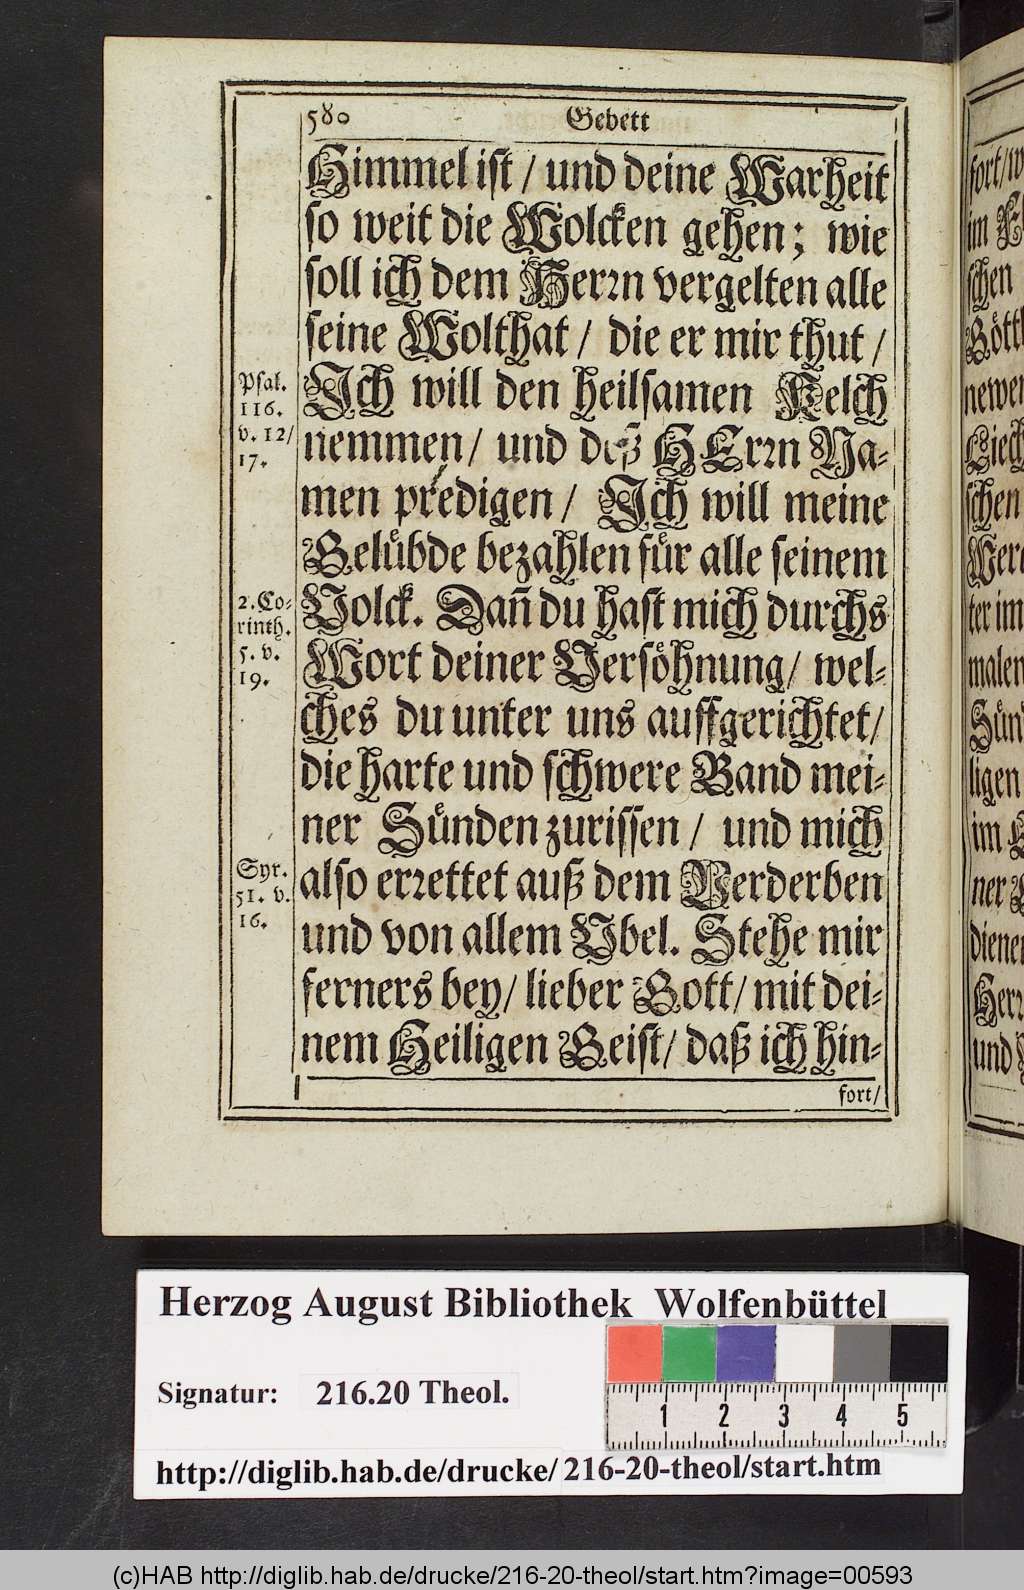 580 Gebett
Himmel ist / und deine Warheit
so weit die Wolcken gehen; wie
soll ich dem Herrn vergelten alle
seine Wolthat / die er mir thut /
Ich will den heilsamen Kelch
nemmen / und deß HErrn Na-
men predigen / Ich will meine
Gelübde bezahlen für alle seinem
Volck. Dañ du hast mich durchs
Wort deiner Versöhnung / wel-
ches du unter uns auffgerichtet /
die harte und schwere Band mei-
ner Sünden zurissen / und mich
also errettet auß dem Verderben
und von allem Vbel. Stehe mir
ferners bey / lieber Gott / mit dei-
nem Heiligen Geist / daß ich hin-
fort /
Psal.
116.
v. 12/
17.
2. Co-
rinth.
5. v.
19.
Syr.
51. v.
16.
fort / w
im
schen
Göttl
newen
Liech
schen
Werc
ter im
malen
Sünd
ligen
im
ner
diener
Herr
und
Herzog August Bibliothek Wolfenbüttel
Signatur: 216.20 Theol.
1 2 3 4 5
http://diglib.hab.de/drucke/216-20-theol/start.htm
(c)HAB http://diglib.hab.de/drucke/216-20-theol/start.htm?image=00593